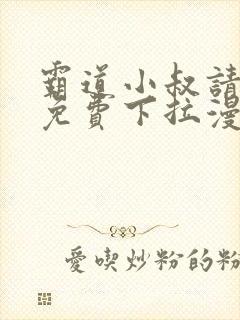 霸道小叔請
免費下拉漫
愛喫炒粉的粉